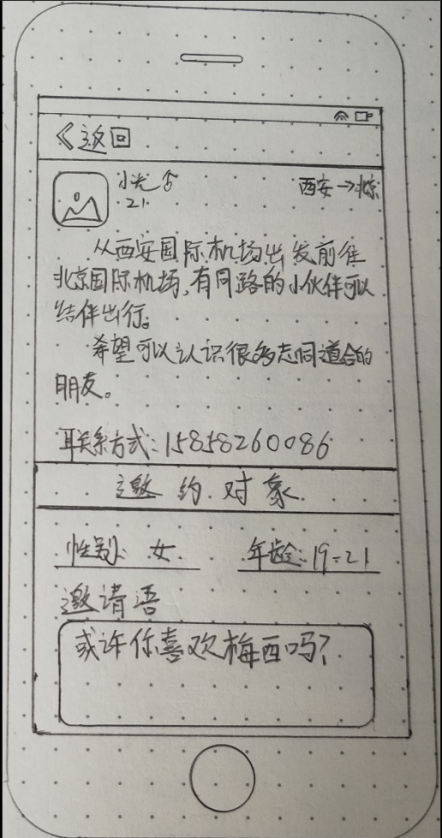 《返回
小先否
21
西安→北京
从西安国际机场出发前往
北京国际机场,有同路的小伙伴可以
结伴出行。
希望可以认识很多志同道合的
朋友。
联系方式:15858260086
邀约对象
性别:女 年龄:19-21
邀请语
或许你喜欢梅西吗?